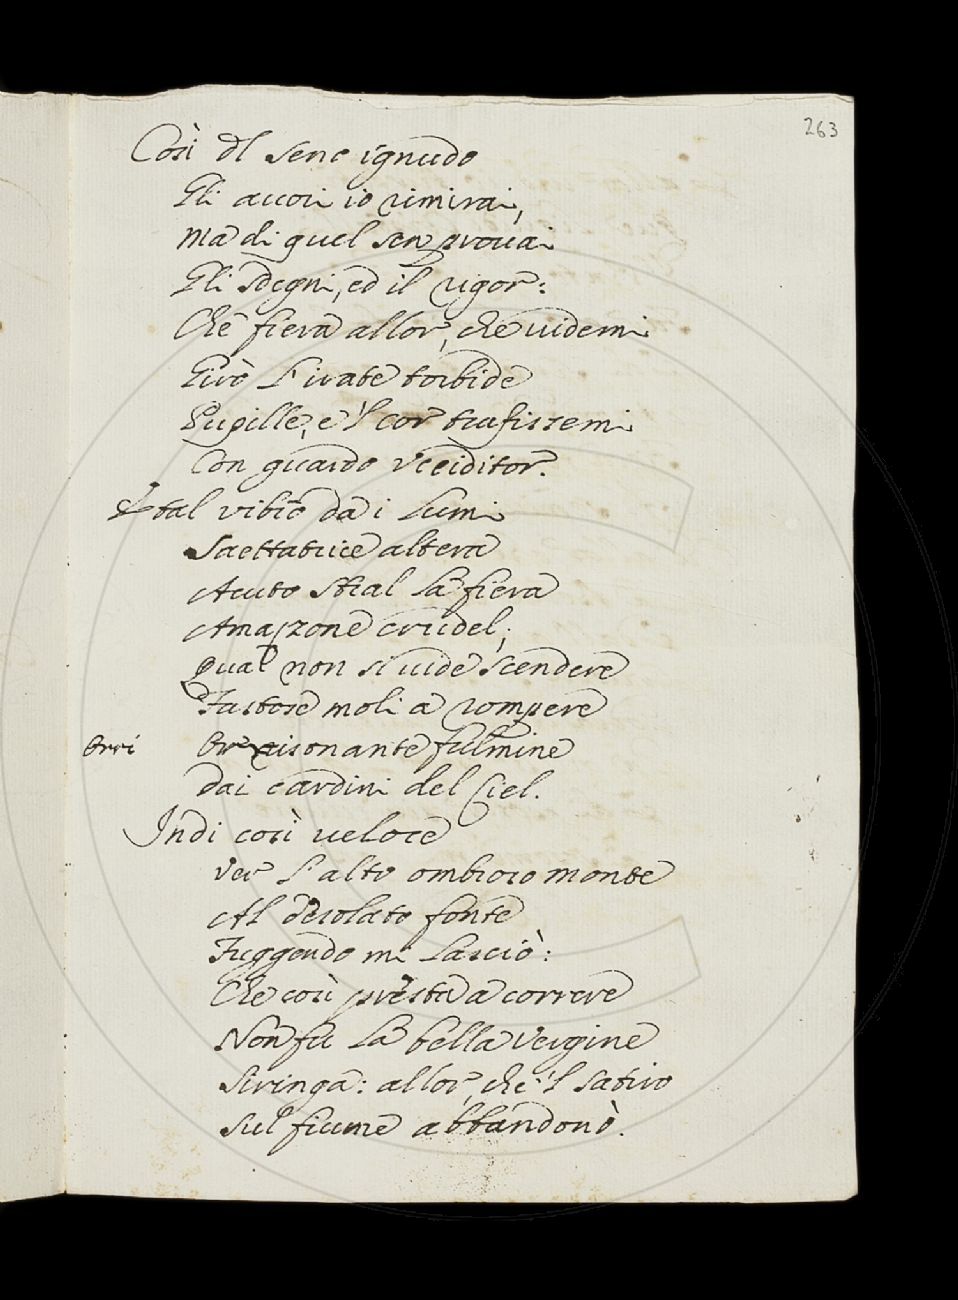 263
Così dl seno ignudo
Gli avori io rimirai,
Ma di quel sen provai
Gli sdegni, ed il rigor:
Che fiera allor, che videmi
Girò l'irate torbide
Pupille, e 'l cor trafissemi
Con guardo vcciditor.
E tal vibrò da i lumi
Saettatrice altera
Acuto stral la fiera
Amazzone crudel;
Qual non si vide scendere
Fastose moli a rompere
Orri Orrisonante fulmine
Dai cardini del Ciel.
Indi così veloce
Ver l'altro ombroso monte
Al desolato fonte
Fuggendo mi lasciò:
Che così presta a correre
Non fu la bella Vergine
Siringa: allor, che 'l satiro
Sul fiume abbandonò.